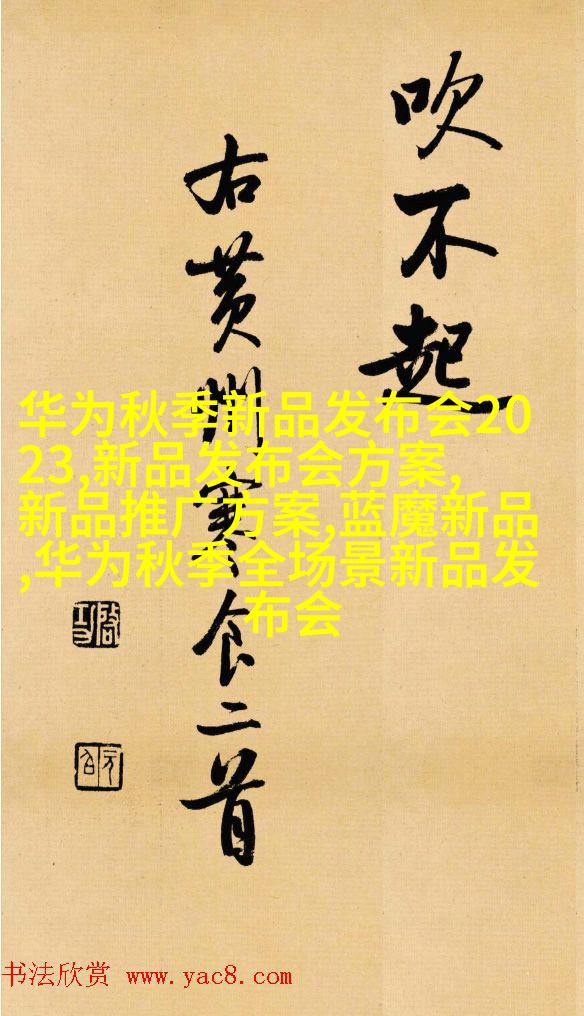 吹不起
右黄州寒食二首
华为秋季新品发布会20
23,新品发布会方案,
新品推广方案,蓝魔新品
,华为秋季全场景新品发
布会
启功
元白
书法欣赏 www.yac8.com